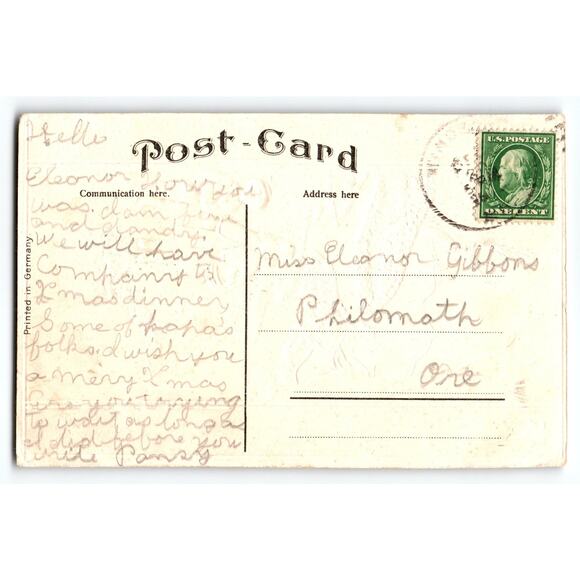 Hello
Post-Card
Eleanor
Communication here.
Address here
was dam fine
and dandy.
We will have
Company
Xmas dinner
Some of papas
folks. I wish you
a merry Xmas
Are you trying
to wait as long as
I did before you
write Pansy
Printed in Germany.
U.S. POSTAGE
ONE CENT
Miss Eleanor Gibbons
Philomath
Ore